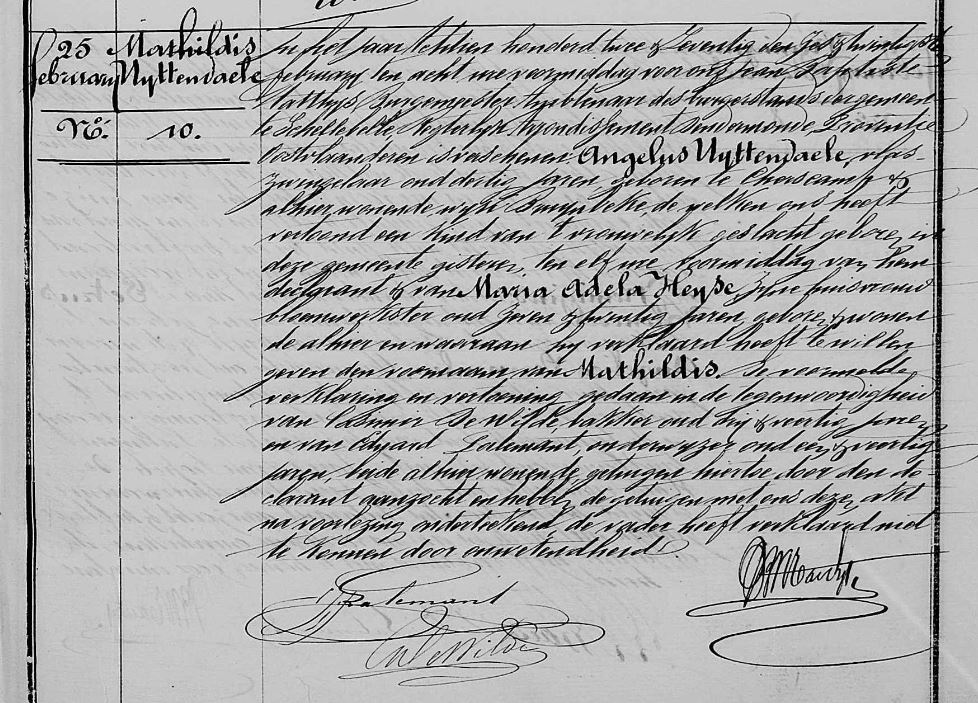 25 Mathildis
february Uyttendaele
No. 10.
In het jaar achtien honderd twee & seventig den vyf & twintigste
february ten acht ure voormiddag voor ons Jean Baptiste
Matthys Burgemeester Amblenaar des burgerstands der gemeen-
te Schellebelle Regterlyk Arrondissement Dendermonde, Provintie
Oostvlaanderen is verschenen Angelus Uyttendaele, vlas-
zwingelaar oud dertig jaren, geboren te Cherscamp &
alhier wonende wyk de welken ons heeft
vertoond een kind van t vrouwelyk geslacht geboren in
deze gemeente gisteren, ten elf ure voormiddag van hem
declarant & van Maria Adela Heyse, zyne huisvrouw
oud zeven & twintig jaren, geboren & wonen-
de alhier en waaraan hy verklaard heeft te willen
geven den voornaam van Mathildis. De voormelde
verklaring en vertooning gedaan in de tegenwoordigheid
van Casimir De Wilde bakker oud dry & veertig jaren
en van Edward Palemant, onderwyzer oud een & veertig
jaren, beide alhier wonende, getuigen hiertoe door den de-
clarant aangezocht en hebben de getuigen met ons deze akt
na voorlezing onderteekend, de vader heeft verklaard niet
te kunnen door onwetendheid
Palemant
De Wilde